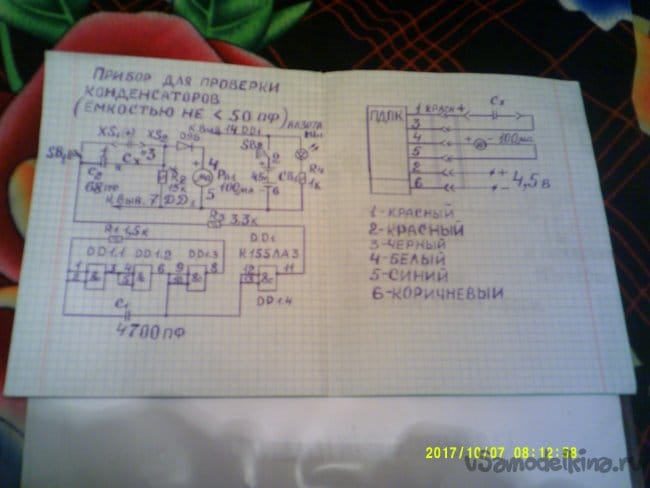 ПРИБОР ДЛЯ ПРОВЕРКИ
КОНДЕНСАТОРОВ
(ЁМКОСТЬЮ НЕ < 50 ПФ)
К ВЫВ. 14 DD1
XS1
XS2
Д9Б
SB1
SB2
Cx
3
4
5
C2
R2
15К
PA1
100 МА
4,5В
R4
1К
К ВЫВ. 7 DD1
R3 3,3К
R1 1,5К
DD1
DD1.1
DD1.2
DD1.3
К155ЛА3
1
2
&
3
4
5
&
6
9
10
&
8
12
13
&
11
DD1.4
C1
4700 ПФ
ПДПК
1 КРАСН +
Cx
3
4
+ - 100 МА
5
2
+
4,5 В
6
-
1-КРАСНЫЙ
2-КРАСНЫЙ
3-ЧЕРНЫЙ
4-БЕЛЫЙ
5-СИНИЙ
6-КОРИЧНЕВЫЙ
2017/10/07 08:12:58
vSamodelkina.ru